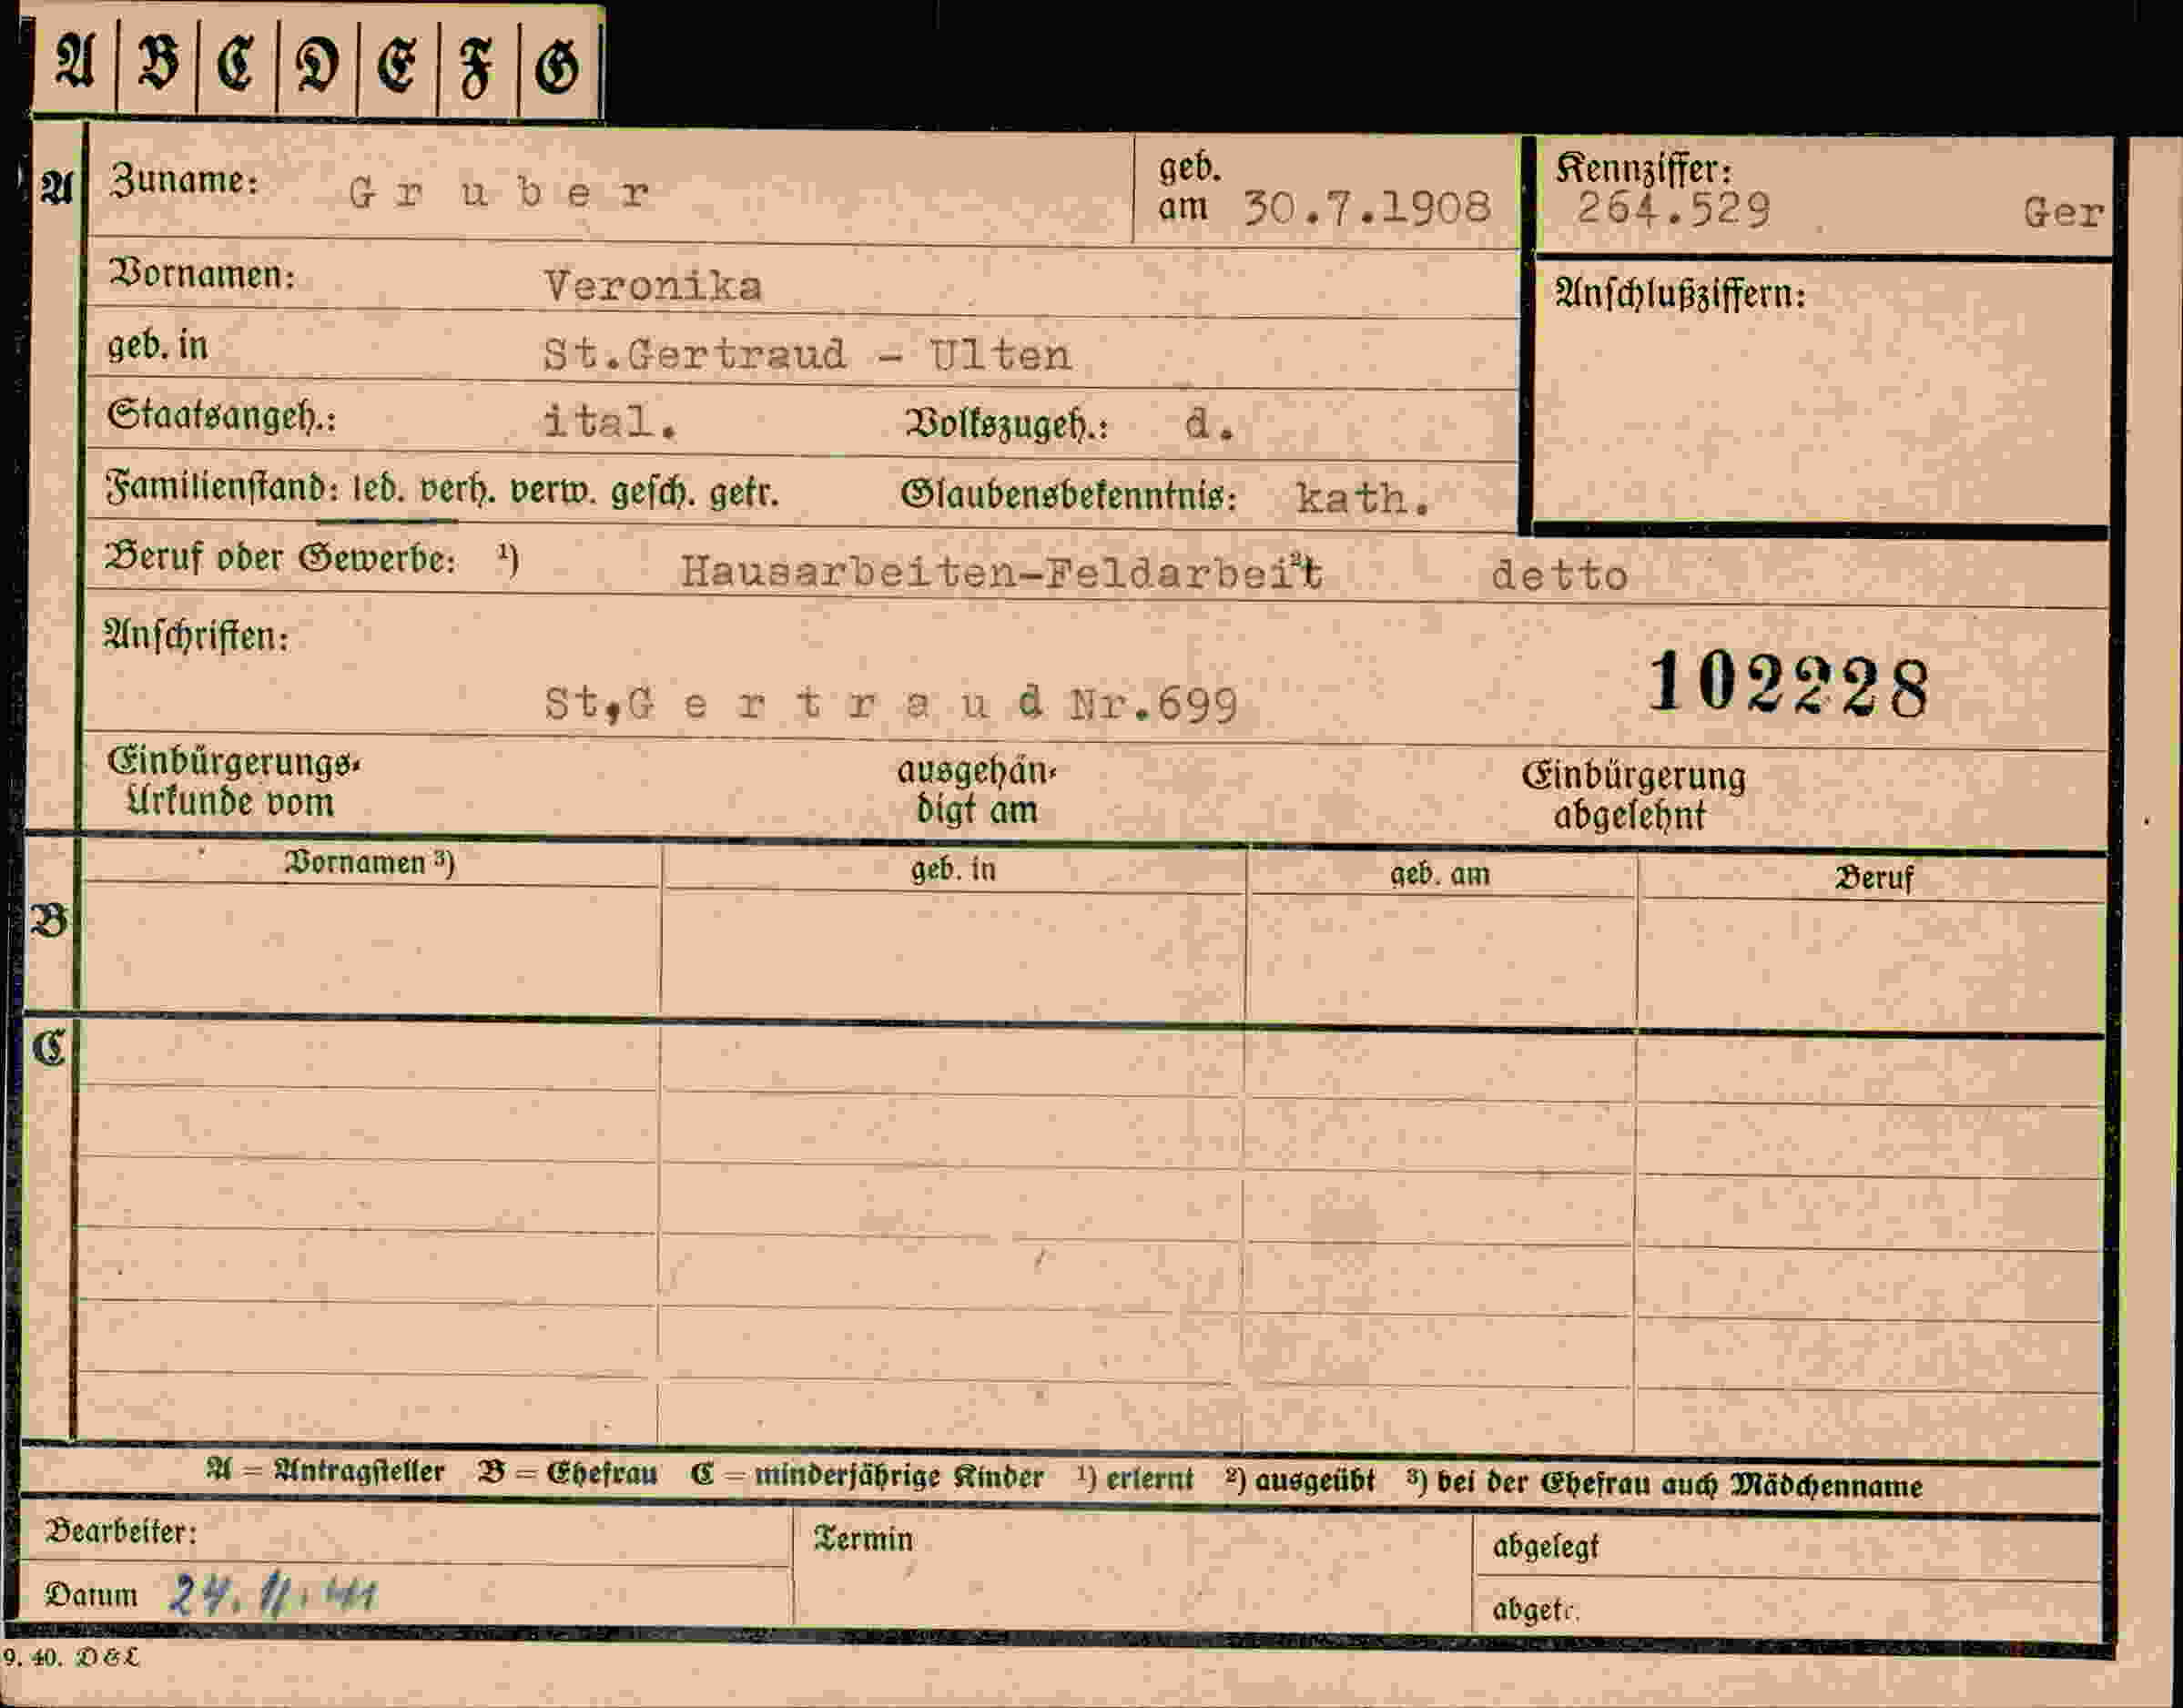 A B C D E F G
A Zuname: Gruber geb. am 30.7.1908 Kennziffer: 264.529 Ger
Vornamen: Veronika
Anschlußziffern:
geb. in St.Gertraud - Ulten
Staatsangeh.: ital. Volkszugeh.: d.
Familienstand: led. verh. verw. gesch. getr. Glaubensbekenntnis: kath.
Beruf oder Gewerbe: ¹) Hausarbeiten-Feldarbeit ²) detto
Anschriften:
102228
St,Gertraud Nr.699
Einbürgerungs- ausgehän- Einbürgerung
Urkunde vom digt am abgelehnt
Vornamen ³) geb. in geb. am Beruf
B
C
A = Antragsteller B = Ehefrau C = minderjährige Kinder ¹) erlernt ²) ausgeübt ³) bei der Ehefrau auch Mädchenname
Bearbeiter: Termin abgelegt
Datum 24. 11. 41 abgetr.
9. 40. D & L